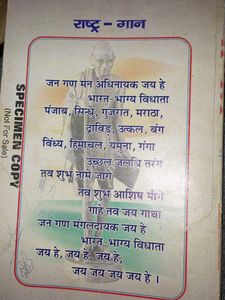 राष्ट्र - गान
जन गण मन अधिनायक जय हे
भारत-भाग्य विधाता
पंजाब, सिन्ध, गुजरात, मराठा,
द्राविड़, उत्कल, बंग
विंध्य, हिमाचल, यमुना, गंगा
उच्छल जलधि तरंग
तव शुभ नामे जागे
तव शुभ आशिष मांगे
गाहे तव जय गाथा
जन गण मंगलदायक जय हे
भारत-भाग्य विधाता
जय हे, जय हे, जय हे,
जय जय जय जय हे ।
SPECIMEN COPY
(Not For Sale)